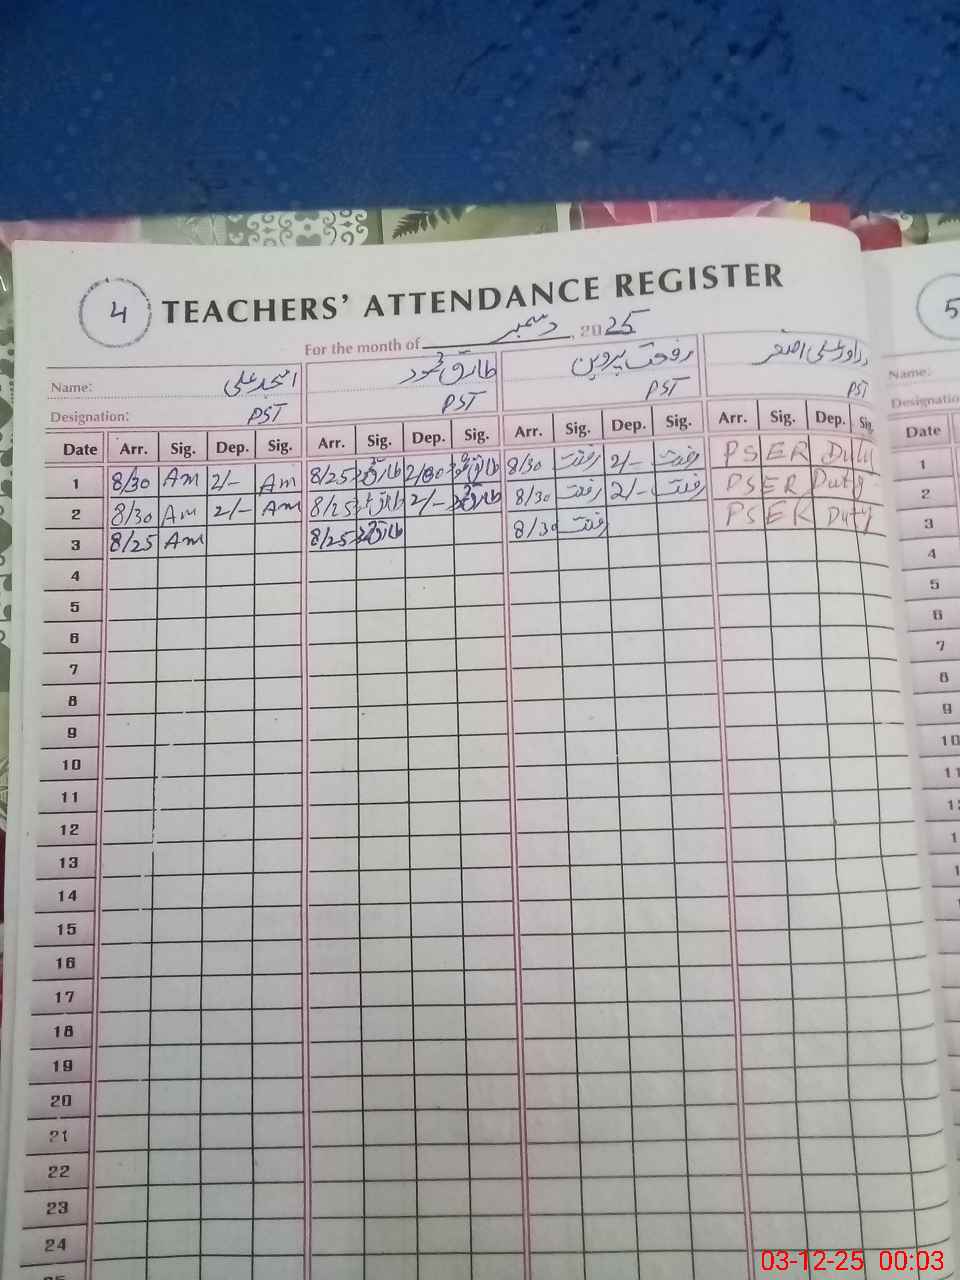 4 TEACHERS' ATTENDANCE REGISTER 5
For the month of دسمبر, 2025
Name: امجد علی طارق محمود رفعت پروین راؤ علی اصغر Name:
Designation: PST PST PST PST Designatio
Date Arr. Sig. Dep. Sig. Arr. Sig. Dep. Sig. Arr. Sig. Dep. Sig. Arr. Sig. Dep. Sig. Date
1 8/30 Am 2/- Am 8/25 طارق 2/00 طارق 8/30 رفعت 2/- رفعت PSER Duty 1
2 8/30 Am 2/- Am 8/25 طارق 2/- طارق 8/30 رفعت 2/- رفعت PSER Duty 2
3 8/25 Am 8/25 طارق 8/30 رفعت PSER Duty 3
4 4
5 5
6 6
7 7
8 8
9 9
10 10
11 11
12 12
13 1
14 1
15 1
16
17
18
19
20
21
22
23
24
03-12-25 00:03